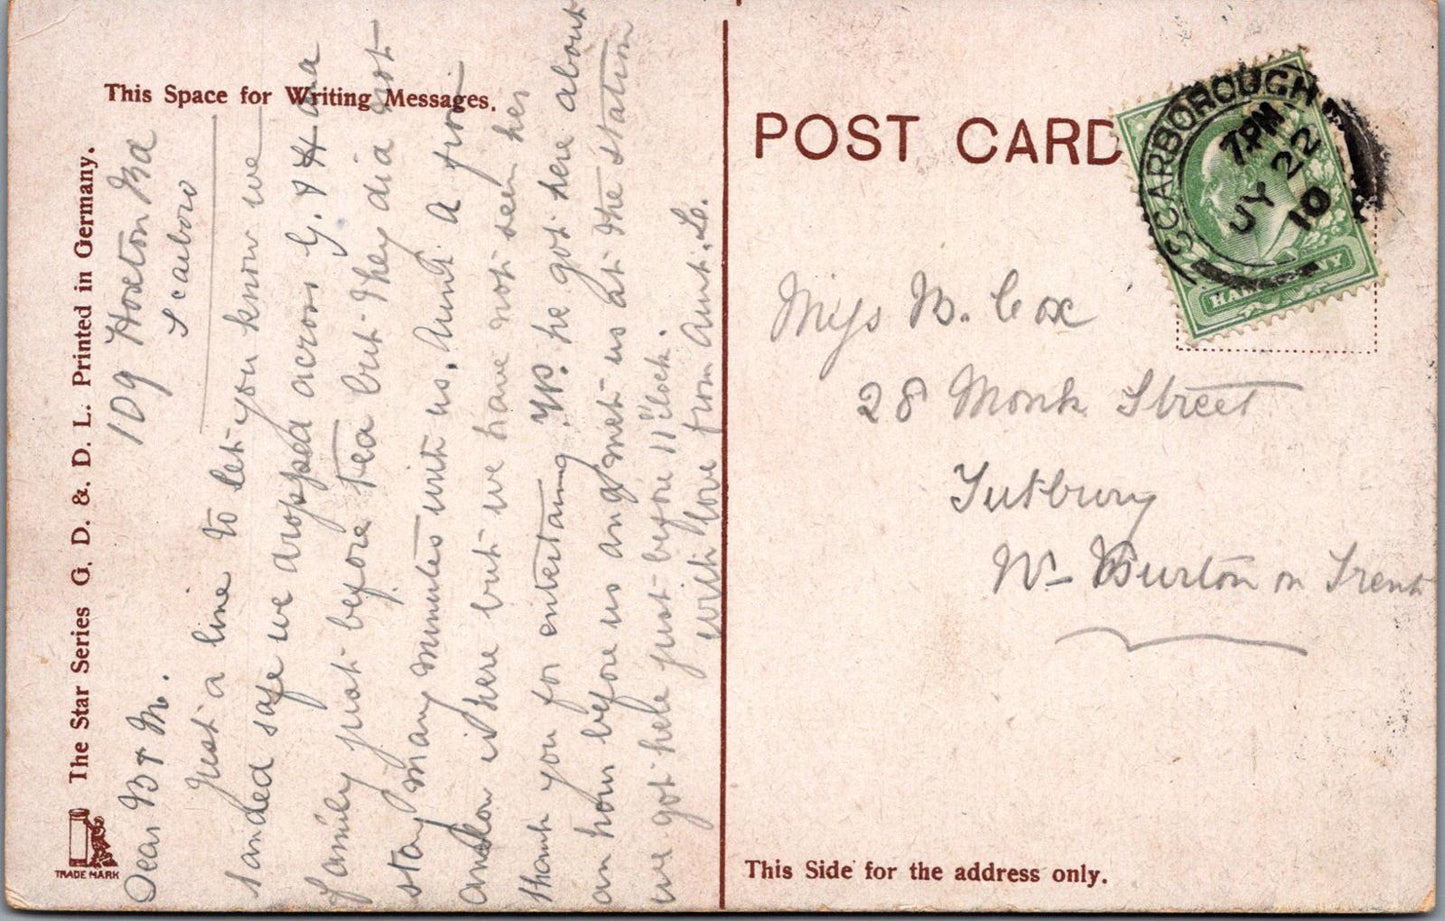 This Space for Writing Messages.
The Star Series G. D. & D. L. Printed in Germany.
TRADE MARK
109 Hoxton Rd
Scarboro
Dear B & M.
Just a line to let you know we
landed safe we dropped across G. & H and
family just before tea but they did not
stay many minutes with us. Aunt A from
is here but we have not seen her
thank you for entertaining he got here about
an hour before us and met us at the station
we got here just before 11 o'clock.
with love from Aunt. Lo.
POST CARD
SCARBOROUGH
7 PM
JY 22
10
HALFPENNY
Miss B. Cox
28 Monk Street
Tutbury
Nr Burton on Trent
This Side for the address only.